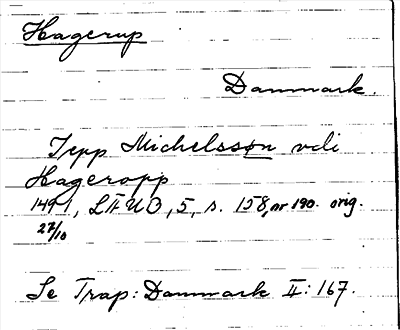 Hagerup
Danmark.
Jepp Michelssøn vdi
Hageropp
1491, LÄUB, 5, s. 158, nr 190. orig.
27/10
Se Trap: Danmark II: 167.